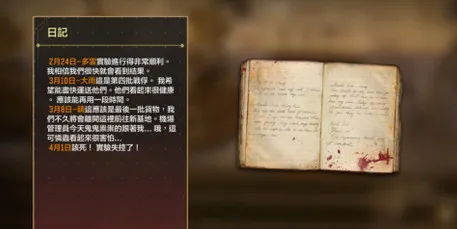 日記
2月24日-多雲實驗進行得非常順利。
我相信我們很快就會看到結果。
3月10日-大雨這是第四批戰俘。 我希
望能盡快運送他們。他們看起來很健康
。 應該能再用一段時間。
3月8日-晴這應該是最後一批貨物，我
們不久將會離開這裡前往新基地。機場
管理員今天鬼鬼祟祟的跟著我... 哦，這
可憐蟲看起來很害怕...
4月1日該死！ 實驗失控了！